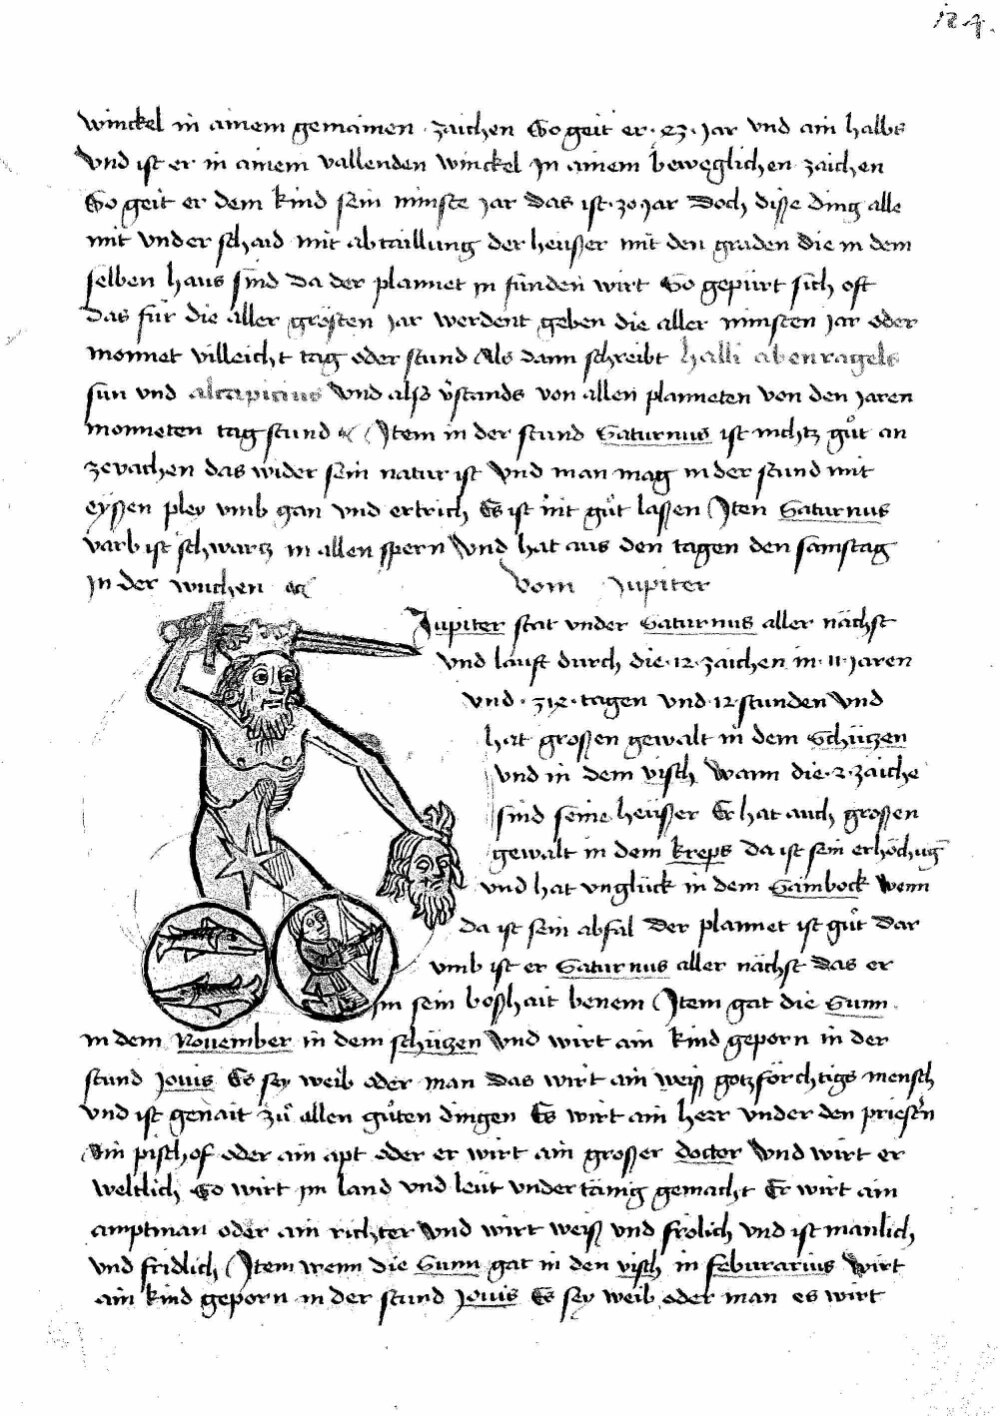 124.
winckel in ainem gemainen zaichen So geit er · 43 · jar vnd ain halbs
vnd ist er in ainem vallenden winckel Jn ainem beweglichen zaichen
So geit er dem kind sein minste jar das ist · 30 jar Doch disse ding alle
mit vnderschaid mit abtaillung der heusser mit den graden die in dem
selben haus sind da der plannet in funden wirt So gepürt sich oft
das für die aller grösten jar werdent geben die aller minsten jar oder
monnet villeicht tag oder stund Als dann schreibt halli abenragels
sun vnd alcapicius vnd alss v̓stands von allen planneten von den jaren
monneten tag stund Jtem in der stund Saturnus ist nichtz gůt an
zevachen das wider sein natur ist vnd man mag in der stund mit
eyssen pley vmb gan vnd ertrich Es ist nit gůt lassen Jten Saturnus
varb ist schwartz in allen spern vnd hat aus den tagen den samstag
in der wuchen
Vom Jupiter
Jupiter stat vnder Saturnus aller nächst
vnd lauft durch die · 12 · zaichen in · 11 · jaren
vnd · 314 · tagen vnd · 12 stunden vnd
hat grossen gewalt in dem Schützen
vnd in dem visch wann die · 2 · zaiche
sind seine heüsser Er hat auch grossen
gewalt in dem kreps da ist sein erhöchug̅
vnd hat vnglück in dem Sainbock wenn
da ist sein abfal Der plannet ist gůt dar
vmb ist er Saturnus aller nächst das er
jm sein boshait benem Jtem gat die Sunn
in dem November in dem schützen vnd wirt ain kind geporn in der
stund Jouis Es sey weib oder man das wirt ain weiss gotzförchtigs mensch
vnd ist genait zů allen gůten dingen Es wirt ain herr vnder den priestn̓
Ain pischof oder ain apt oder er wirt ain grosser doctor vnd wirt er
weltlich So wirt jm land vnd leüt vndertänig gemacht Er wirt ain
amptman oder ain richter vnd wirt weiss vnd frölich vnd ist manlich
vnd fridlich Jtem wenn die Sunn gat in den visch in feburarius wirt
ain kind geporn in der stund Jouis Es sey weib oder man es wirt